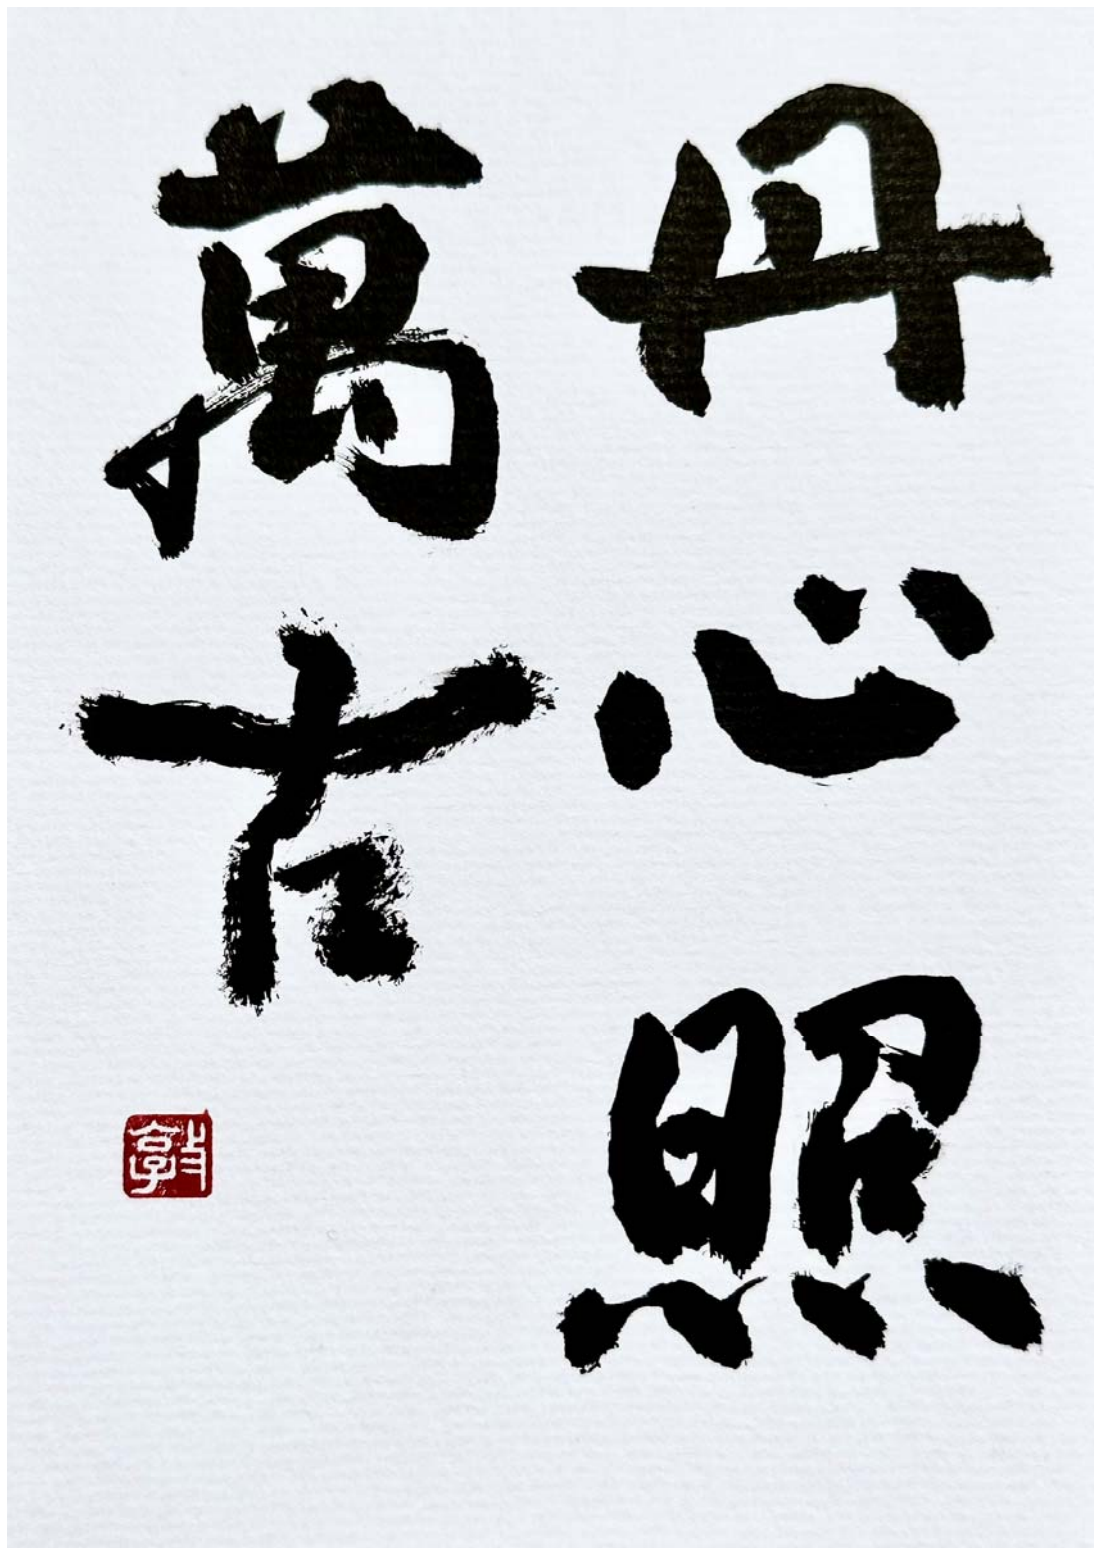 丹心照
萬古
敦